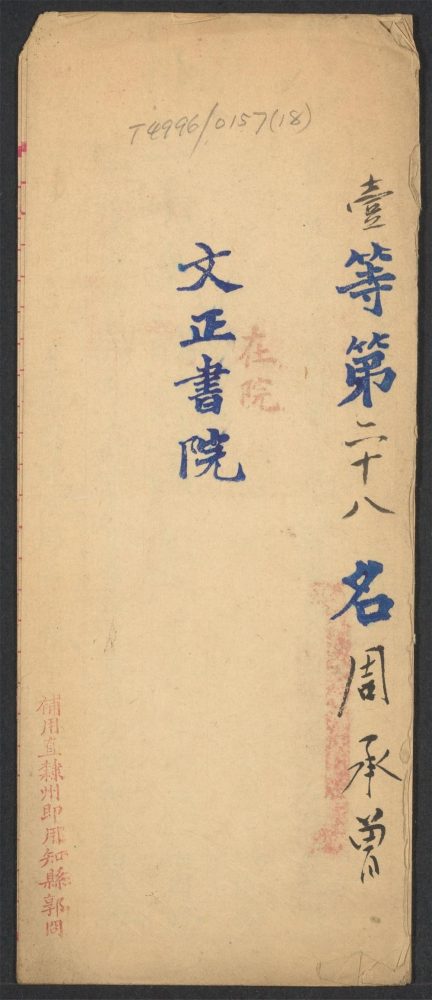 T4996/0157(18)
壹等第二十八名周承曾
在院
文正書院
補用直隸州即用知縣郭閱